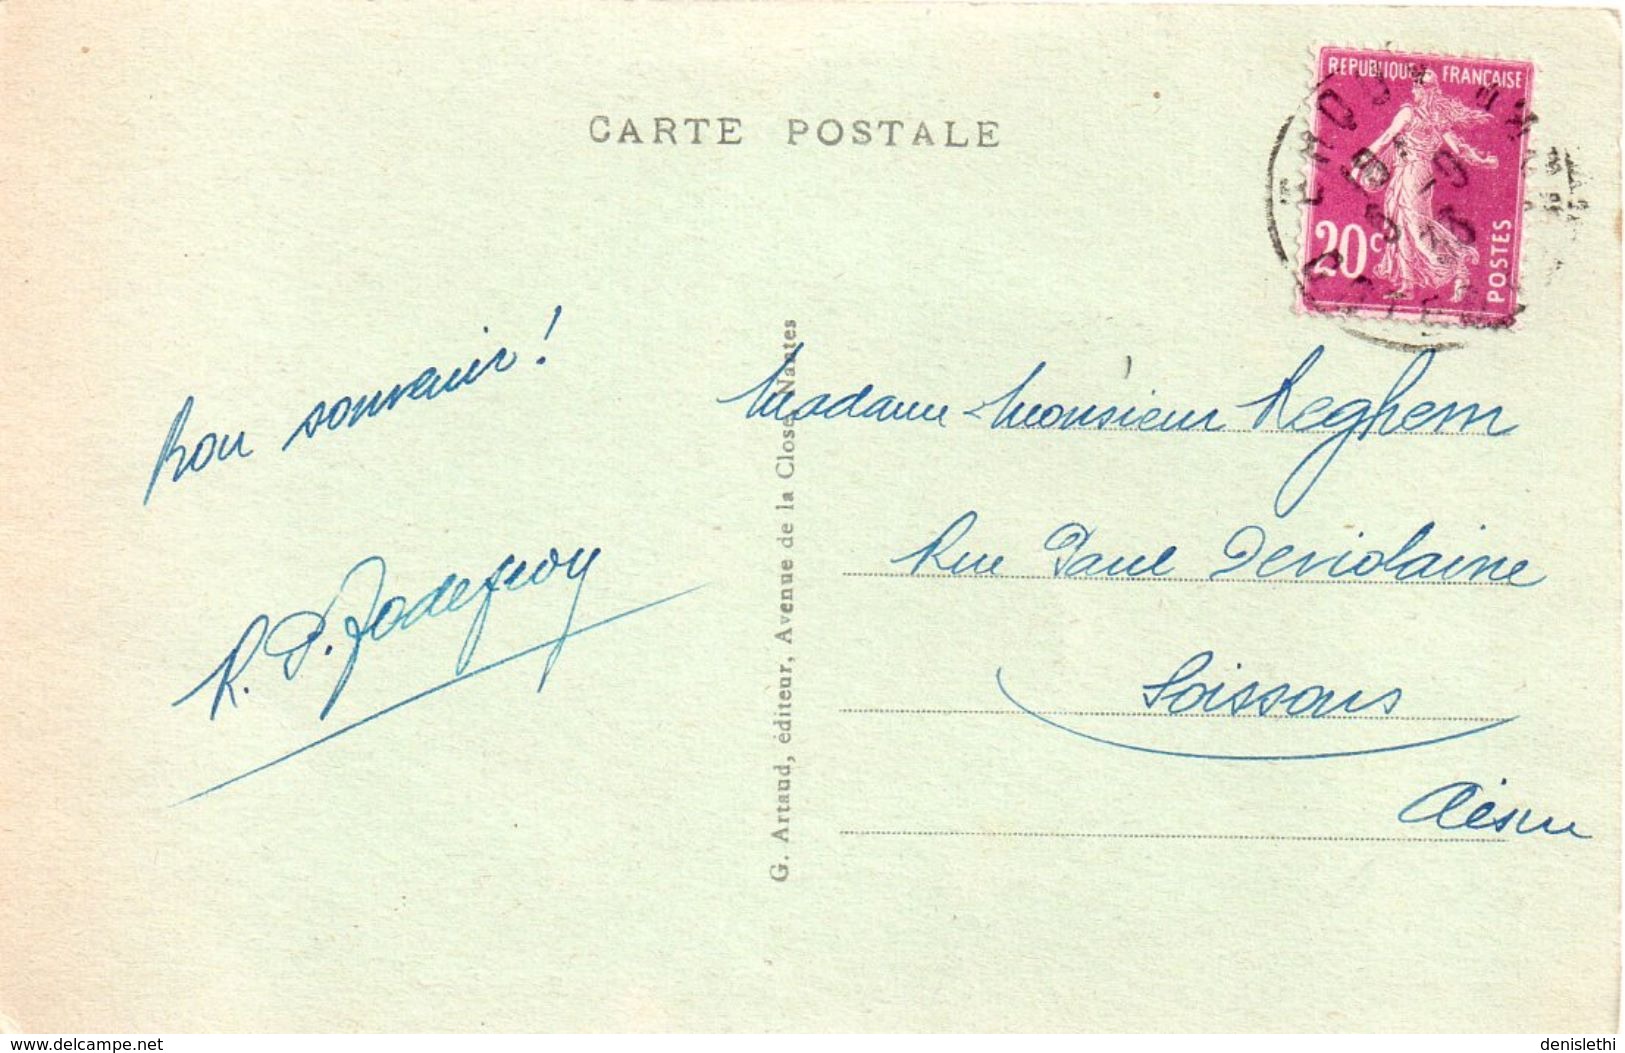 CARTE POSTALE
REPUBLIQUE FRANÇAISE
20c
POSTES
Bon souvenir !
R. D. Godefroy
G. Artaud, éditeur, Avenue de la Close, Nantes
Madame - Monsieur Reghem
Rue Paul Deviolaine
Soissons
Aisne
www.delcampe.net
denislethi